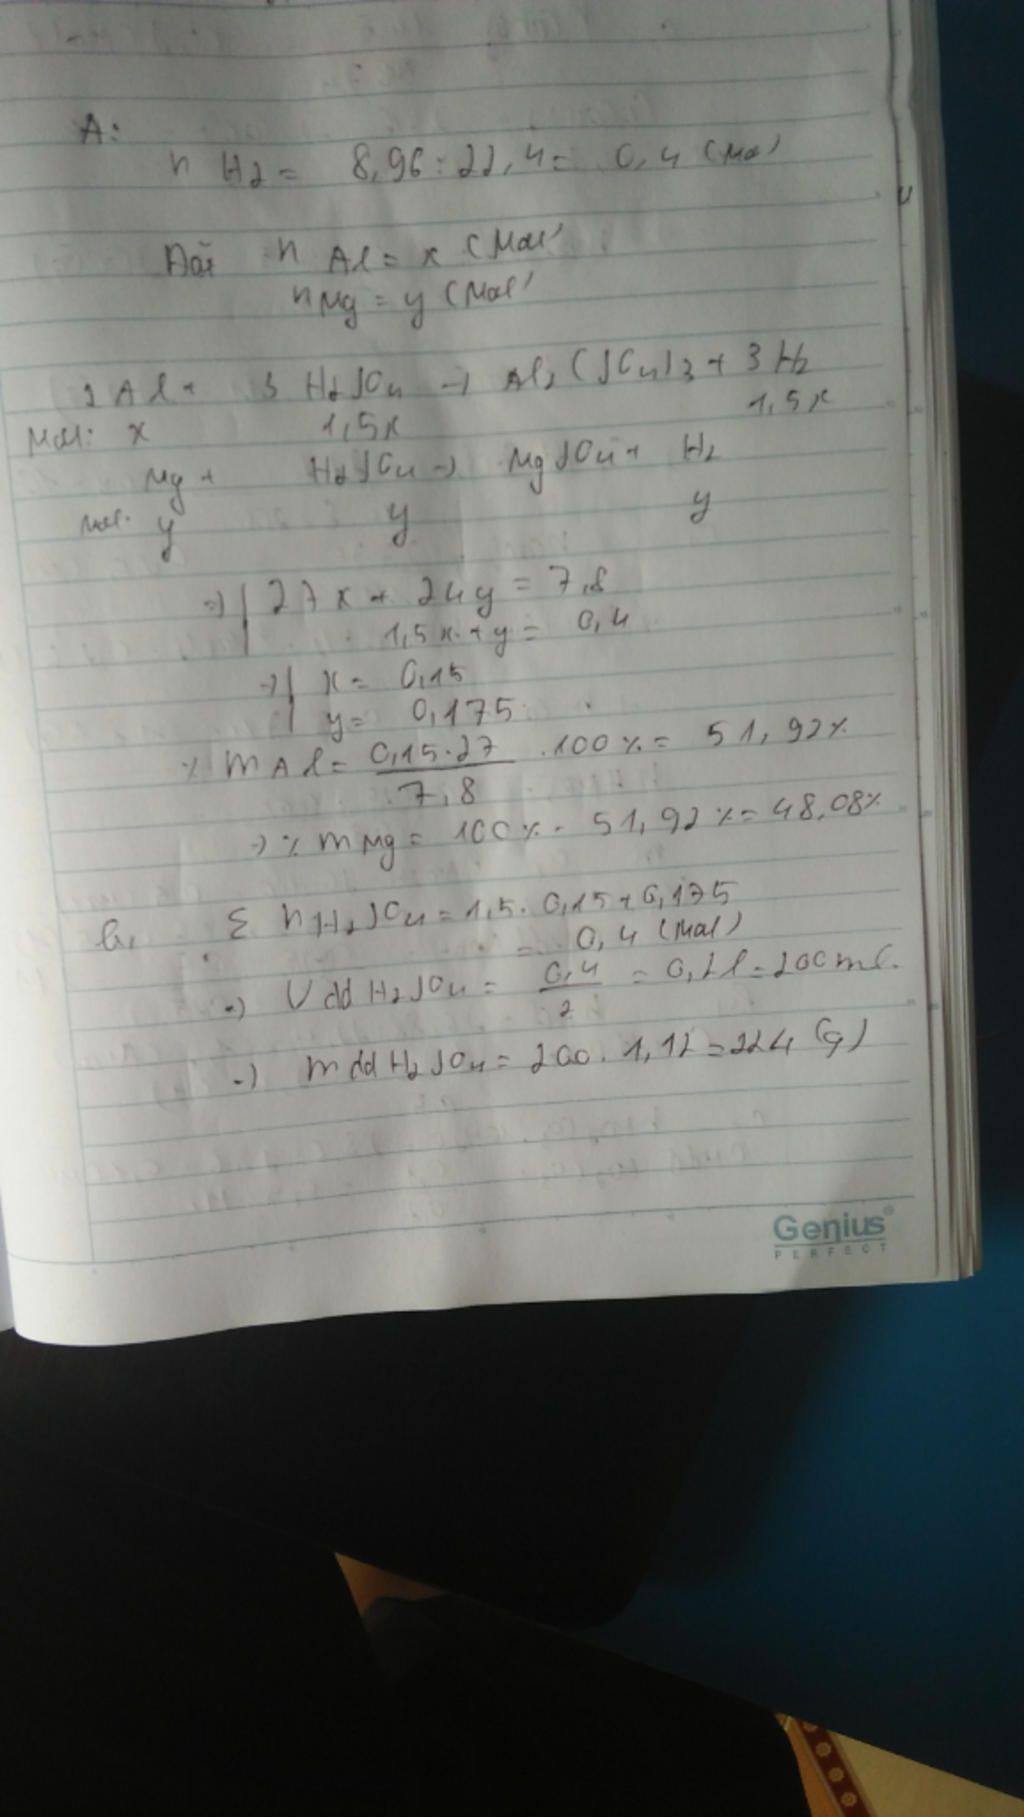 A:
n H2 = 8,96 : 22,4 = 0,4 (mol)
Đặt n Al = x (mol)
n Mg = y (mol)
2 Al + 3 H2SO4 → Al2(SO4)3 + 3 H2
Mol: x 1,5x 1,5x
Mg + H2SO4 → MgSO4 + H2
Mol: y y y
=> | 27x + 24y = 7,8
1,5x + y = 0,4
=> | x = 0,15
y = 0,175
% m Al = 0,15.27 / 7,8 .100% = 51,92%
=> % m Mg = 100% - 51,92% = 48,08%
b, Σ n H2SO4 = 1,5. 0,15 + 0,175
= 0,4 (mol)
=> V dd H2SO4 = 0,4 / 2 = 0,2 l = 200 ml.
=> m dd H2SO4 = 200 . 1,12 = 224 (g)
Genius®
PERFECT